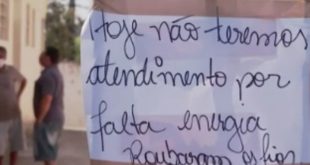 Hoje não teremos
atendimento por
falta energia
Roubaram os fios